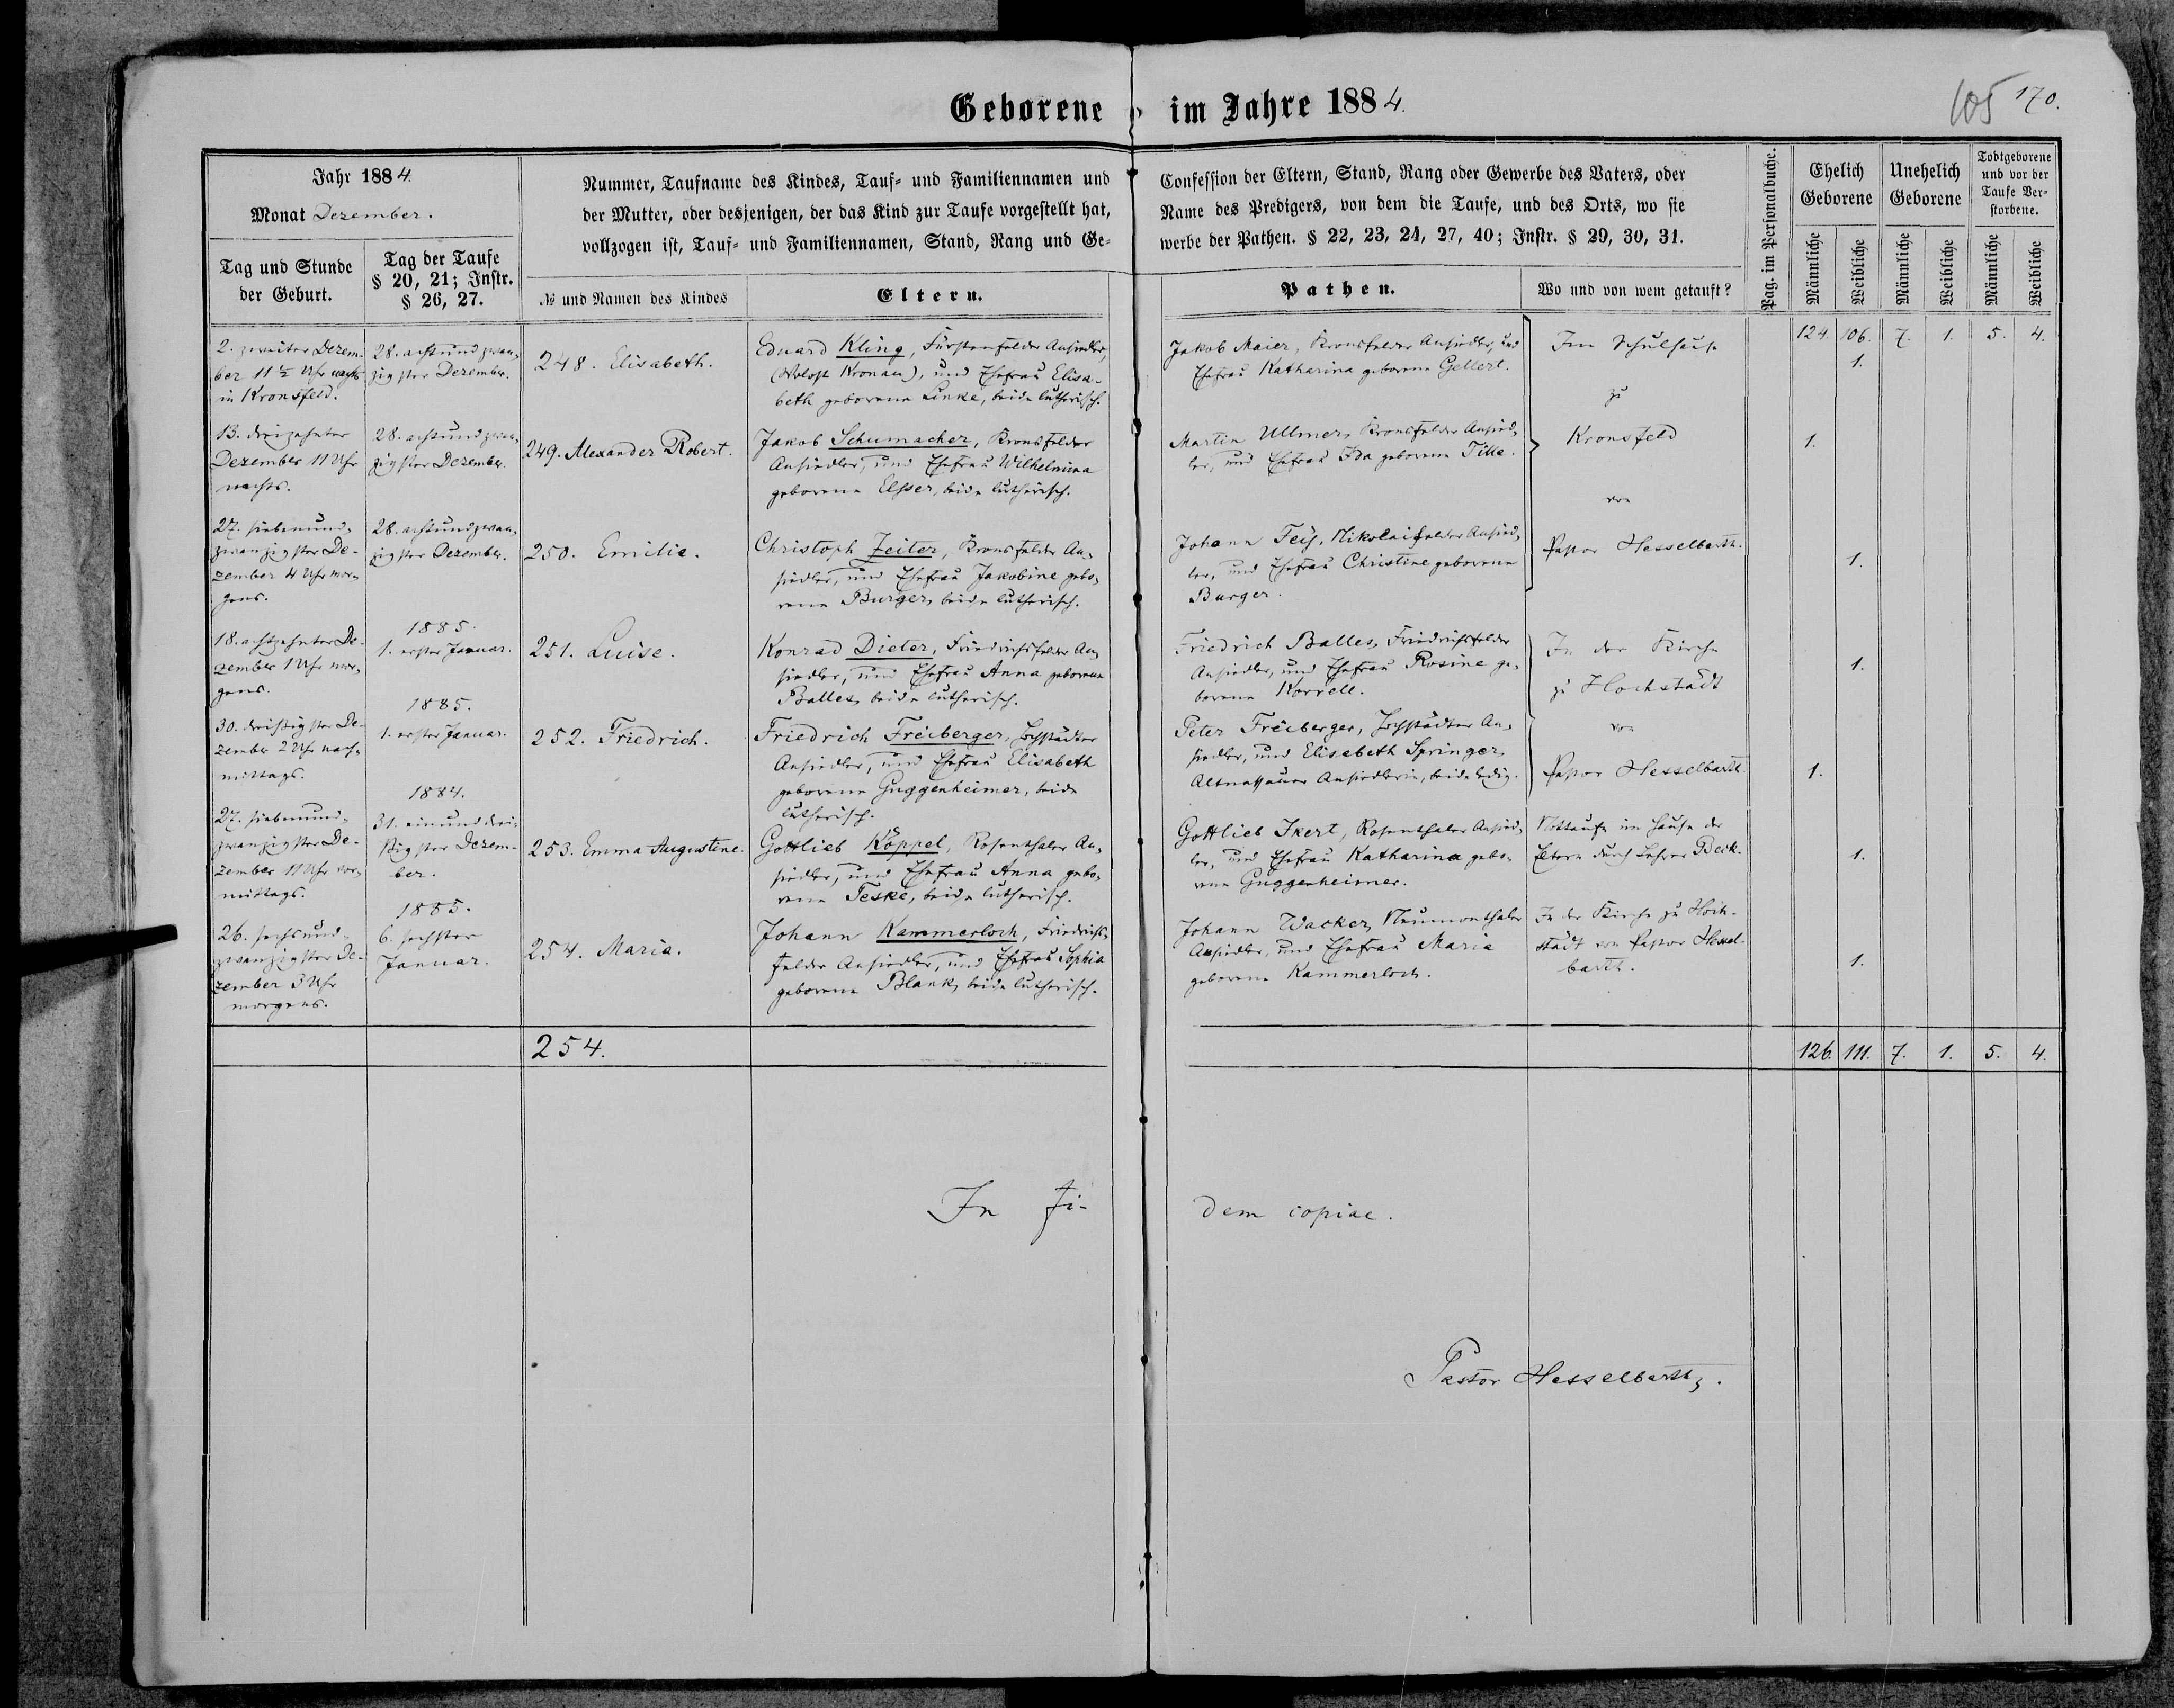 Geborene im Jahre 1884.
105 170.
Jahr 1884.
Monat Dezember.
Tag und Stunde
der Geburt.
Tag der Taufe
§ 20, 21; Instr.
§ 26, 27.
Nummer, Taufname des Kindes, Tauf- und Familiennamen und
der Mutter, oder desjenigen, der das Kind zur Taufe vorgestellt hat,
vollzogen ist, Tauf- und Familiennamen, Stand, Rang und Ge-
№ und Namen des Kindes
Eltern.
Confession der Eltern, Stand, Rang oder Gewerbe des Vaters, oder
Name des Predigers, von dem die Taufe, und des Orts, wo sie
werbe der Pathen. § 22, 23, 24, 27, 40; Instr. § 29, 30, 31.
Pathen.
Wo und von wem getauft?
Pag. im Personalbuche.
Ehelich
Geborene
Unehelich
Geborene
Todtgeborene
und vor der
Taufe Ver-
storbene.
Männliche
Weibliche
Männliche
Weibliche
Männliche
Weibliche
2. zweiter Dezem-
ber 11 ½ Uhr nachts
in Kronsfeld.
28. achtundzwan-
zigster Dezember.
248. Elisabeth.
Eduard Kling, Fürstenfelder Ansiedler,
(Wolost Kronau), und Ehefrau Elisa-
beth geborene Linke, beide lutherisch.
Jakob Maier, Kronsfelder Ansiedler, und
Ehefrau Katharina geborene Gellert.
Im Schulhause
zu
Kronsfeld
von
Pastor Hesselbarth.
124. 106. 7. 1. 5. 4.
1.
13. dreizehnter
Dezember 11 Uhr
nachts.
28. achtundzwan-
zigster Dezember.
249. Alexander Robert.
Jakob Schumacher, Kronsfelder
Ansiedler, und Ehefrau Wilhelmina
geborene Elsser, beide lutherisch.
Martin Ullmer, Kronsfelder Ansied-
ler, und Ehefrau Ida geborene Tille.
1.
27. siebenund-
zwanzigster De-
zember 4 Uhr mor-
gens.
28. achtundzwan-
zigster Dezember.
250. Emilie.
Christoph Zeiter, Kronsfelder An-
siedler, und Ehefrau Jakobine gebo-
rene Burger, beide lutherisch.
Johann Feiy, Nikolaifelder Ansied-
ler, und Ehefrau Christine geborene
Burger.
1.
18. achtzehnter De-
zember 1 Uhr mor-
gens.
1885.
1. erster Januar.
251. Luise.
Konrad Dieter, Friedrichsfelder An-
siedler, und Ehefrau Anna geborene
Balles, beide lutherisch.
Friedrich Balles, Friedrichsfelder
Ansiedler, und Ehefrau Rosine ge-
borene Korrell.
In der Kirche
zu Hochstädt
von
Pastor Hesselbarth.
1.
30. dreißigster De-
zember 2 Uhr nach-
mittags.
1885.
1. erster Januar.
252. Friedrich.
Friedrich Freiberger, Hochstädter
Ansiedler, und Ehefrau Elisabeth
geborene Guggenheimer, beide
lutherisch.
Peter Freiberger, Hochstädter An-
siedler, und Elisabeth Springer,
Altnassauer Ansiedlerin, beide ledig.
1.
27. siebenund-
zwanzigster De-
zember 11 Uhr vor-
mittags.
1884.
31. einunddrei-
ßigster Dezem-
ber.
253. Emma Augustine.
Gottlieb Köppel, Rosenthaler An-
siedler, und Ehefrau Anna gebo-
rene Teske, beide lutherisch.
Gottlieb Ikert, Rosenthaler Ansied-
ler, und Ehefrau Katharina gebo-
rene Guggenheimer.
Nottaufe im Hause der
Eltern durch Lehrer Beck.
1.
26. sechsund-
zwanzigster De-
zember 3 Uhr
morgens.
1885.
6. sechster
Januar.
254. Maria.
Johann Kammerloch, Friedrichs-
felder Ansiedler, und Ehefrau Sophia
geborene Blank, beide lutherisch.
Johann Wacker, Neumonthaler
Ansiedler, und Ehefrau Maria
geborene Kammerloch.
In der Kirche zu Hoch-
städt von Pastor Hessel-
barth.
1.
254.
126. 111. 7. 1. 5. 4.
In fi-
dem copiae.
Pastor Hesselbarth.